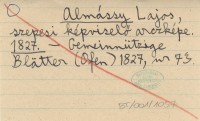 Almássy Lajos,
szepesi képviselő arczképe.
1827. — Gemeinnützige
Blätter (Ofen) 1827, nr 73